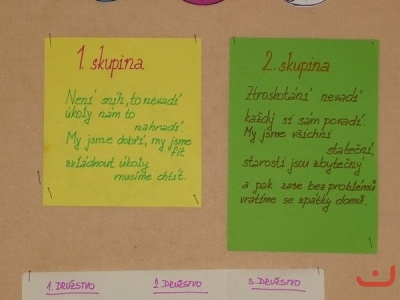 1. skupina
Není sníh, to nevadí
úkoly nám to
nahradí.
My jsme dobří, my jsme
fit
zvládnout úkoly
musíme chtít.
2. skupina
Ztroskotání nevadí
každý si sám poradí.
My jsme všichni
stateční,
starosti jsou zbytečný
a pak zase bez problémů
vrátíme se zpátky domů.
1. DRUŽSTVO
2. DRUŽSTVO
3. DRUŽSTVO